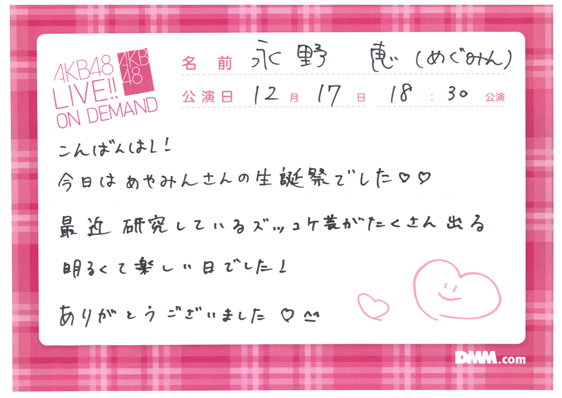 AKB48
LIVE!!
ON DEMAND
AKB
48
名前 永野 恵 (めぐみん)
公演日 12月17日 18:30公演
こんばんは!!
今日はあやみんさんの生誕祭でした♡♡
最近研究しているズッコケ芸がたくさん出る
明るくて楽しい日でした!
ありがとうございました♡
DMM.com